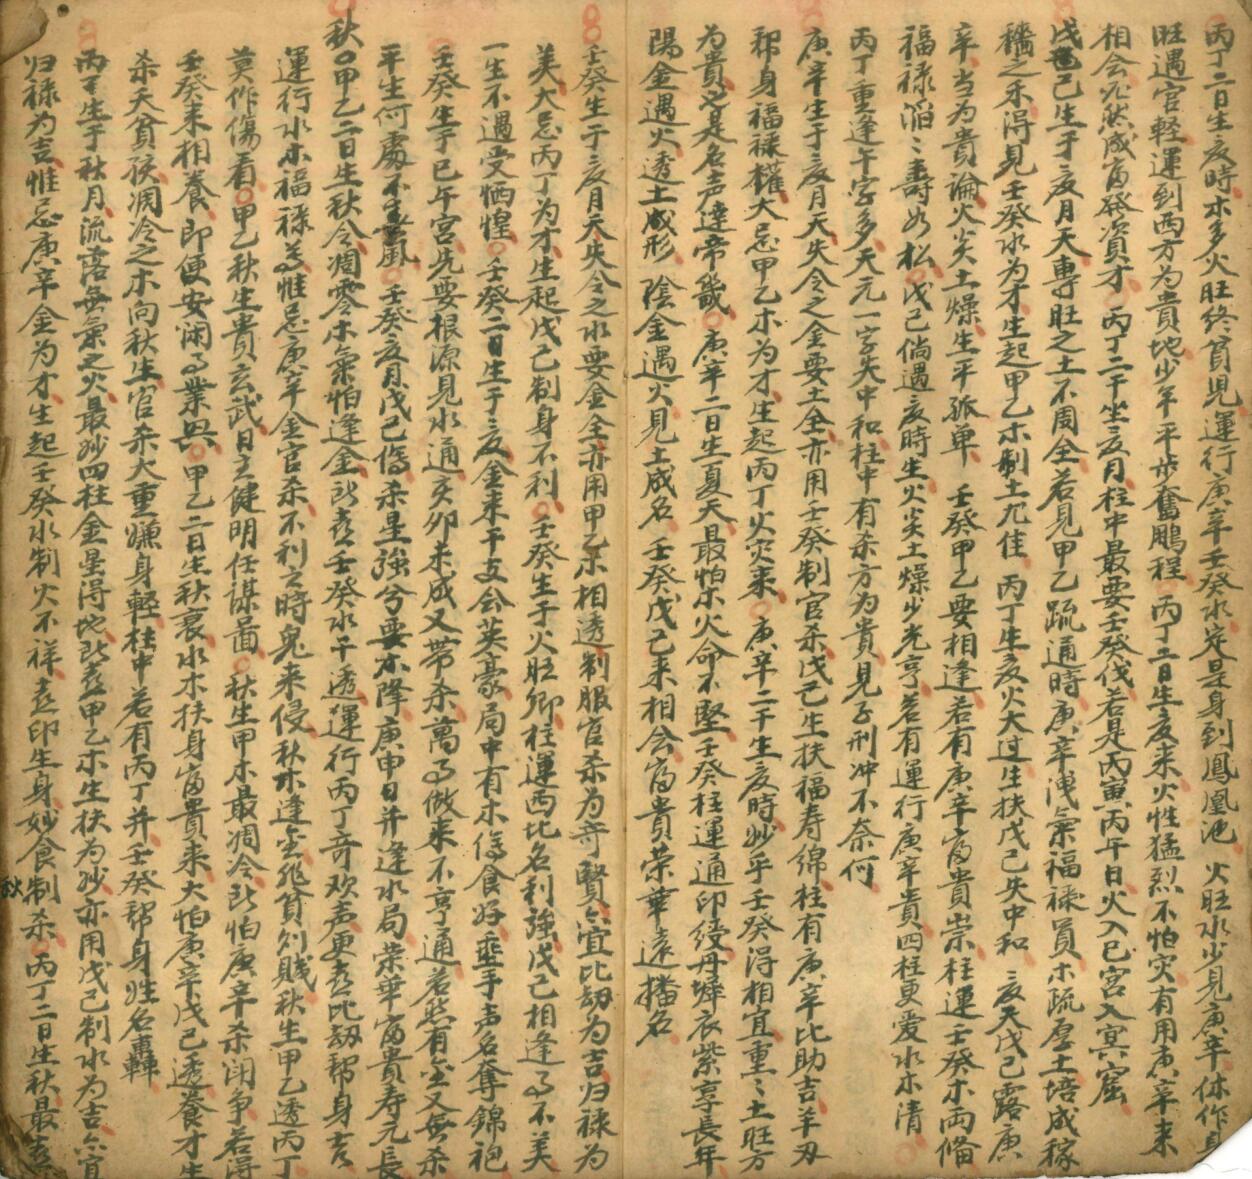 丙丁二日生夏時木多火旺終貧兒運行庚辛壬癸水定是身到鳳凰池 火旺水少見庚辛休作身
旺遇官輕運到西方為貴地少年平步奮鵬程 丙丁二日生夏来火性猛烈不怕灾有用庚辛来
相会必然成富發資才 丙丁二干坐夏月柱中最要壬癸伐若是丙寅丙午日火入巳宮入冥窟
戊己生于夏月天專旺之土不周全若見甲乙疏通時庚辛洩氣福禄員木疏厚土培成稼
穡之禾得見壬癸水为才生起甲乙木制土尤佳 丙丁生夏火大过生扶戊己失中和 夏天戊己露庚
辛当为貴論火炎土燥生平孤单 壬癸甲乙要相逢若有庚辛富貴崇柱運壬癸木両脩
福禄滔〻壽如松 戊己倘遇夏時生火炎土燥少光亨若有運行庚辛貴四柱更爱水木清
丙丁重逢午字多天元一字失中和柱中有杀方为貴見子刑冲不奈何
庚辛生于夏月天失令之金要土全亦用壬癸制官杀戊己生扶福寿綿柱有庚辛比助吉羊刃
帮身福禄權大忌甲乙木为才生起丙丁火灾来 庚辛二干生夏時妙乎壬癸得相宜重〻土旺方
为貴是名声達帝畿 庚辛二日生夏天最怕木火命不堅壬癸柱運通印绶丹墀衣紫享長年
陽金遇火透土成形 陰金遇火見土成名 壬癸戊己来相会富貴荣華遠播名
壬癸生于夏月天失令之水要金全亦用甲乙木相透制服官杀为奇賢六宜比劫为吉归禄为
美大忌丙丁为才生起戊己制身不利 壬癸生于火旺卿柱運西北名利強戊己相逢不美
一生不遇受恓惶 壬癸二日生于夏金来干支会英豪局中有木傷食好垂手声名奪錦袍
壬癸生于巳午宮先要根源見水通亥卯未成又带杀萬做来不亨通若然有金又無杀
平生何處不風 壬癸夏月戊己傷杀星強兮要木降庚申日并逢水局荣華富貴寿元長
秋 甲乙二日生秋令凋零木氣怕逢金所喜壬癸水干透運行丙丁奇欢声更喜比刼帮身吉
運行水木福禄惟忌庚辛金官杀不利之時鬼来侵秋木逢金貧贱秋生甲乙透丙丁
莫作傷看 甲乙秋生貴玄武日主健明任謀啚 秋生甲木最凋冷所怕庚辛杀闭争若得
壬癸来相養即便安闲業興 甲乙二日生秋裹水木扶身富貴来大怕庚辛戊己透養才生
杀天貧孩凋冷之木向秋生官杀大重嫌身輕柱中若有丙丁并壬癸帮身姓名轟
丙丁生于秋月流落無氣之火最妙四柱金曇得地所喜甲乙木生扶为妙亦用戊己制水为吉六宜
归禄为吉惟忌庚辛金为才生起壬癸水制火不祥喜印生身妙食制杀 丙丁二日生秋最
秋